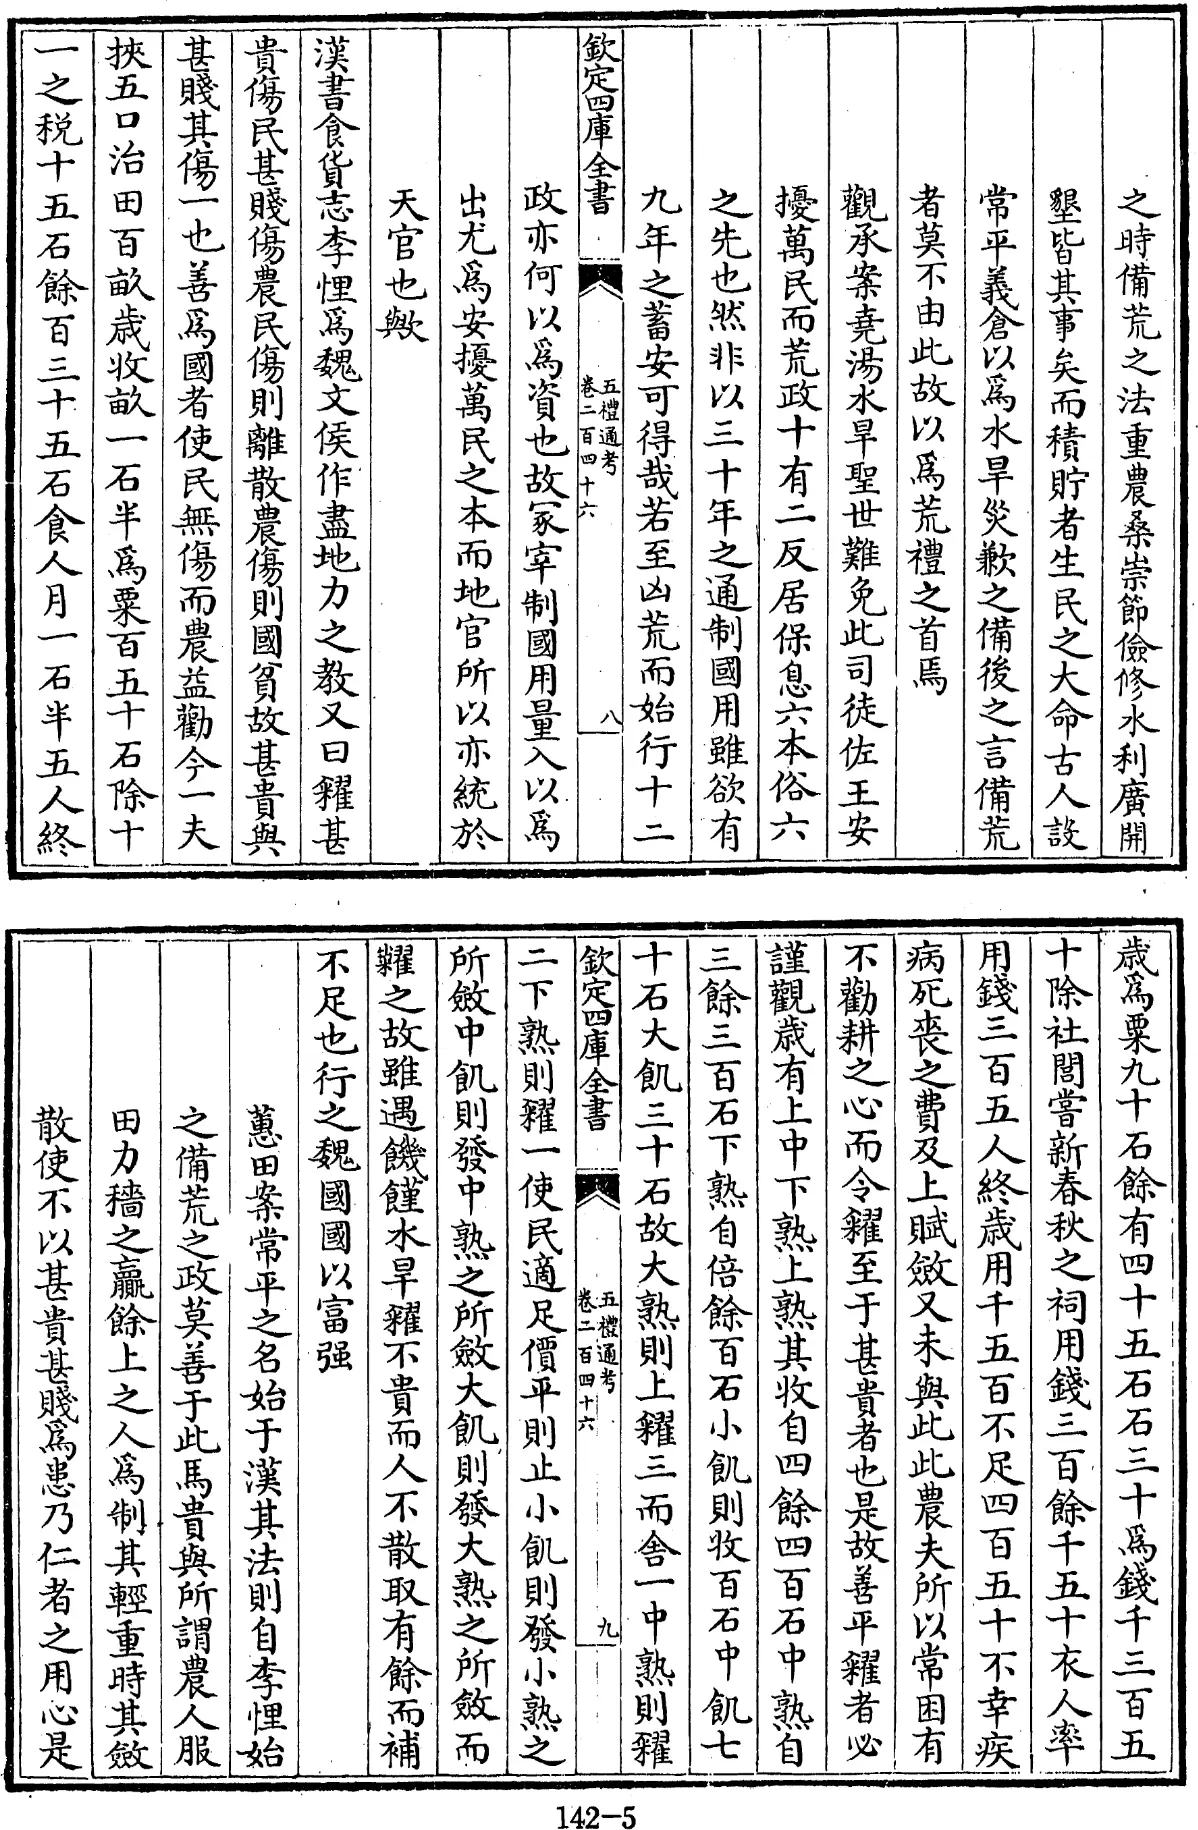 之時備荒之法重農桑崇節儉修水利廣開
墾皆其事矣而積貯者生民之大命古人設
常平義倉以爲水旱災歉之備後之言備荒
者莫不由此故以爲荒禮之首焉
觀承案堯湯水旱聖世難免此司徒佐王安
擾萬民而荒政十有二反居保息六本俗六
之先也然非以三十年之通制國用雖欲有
九年之蓄安可得哉若至凶荒而始行十二
欽定四庫全書
五禮通考
卷二百四十六
八
政亦何以爲資也故冡宰制國用量入以爲
出尤爲安擾萬民之本而地官所以亦統於
天官也歟
漢書食貨志李悝爲魏文侯作盡地力之教又曰糴甚
貴傷民甚賤傷農民傷則離散農傷則國貧故甚貴與
甚賤其傷一也善爲國者使民無傷而農益勸今一夫
挾五口治田百畝歲收畝一石半爲粟百五十石除十
一之税十五石餘百三十五石食人月一石半五人終
歲爲粟九十石餘有四十五石石三十爲錢千三百五
十除社閭嘗新春秋之祠用錢三百餘千五十衣人率
用錢三百五人終歲用千五百不足四百五十不幸疾
病死喪之費及上賦斂又未與此此農夫所以常困有
不勸耕之心而令糴至于甚貴者也是故善平糴者必
謹觀歲有上中下熟上熟其收自四餘四百石中熟自
三餘三百石下熟自倍餘百石小飢則收百石中飢七
十石大飢三十石故大熟則上糴三而舍一中熟則糴
欽定四庫全書
五禮通考
卷二百四十六
九
二下熟則糴一使民適足價平則止小飢則發小熟之
所斂中飢則發中熟之所斂大飢則發大熟之所斂而
糶之故雖遇饑饉水旱糴不貴而人不散取有餘而補
不足也行之魏國國以富强
蕙田案常平之名始于漢其法則自李悝始
之備荒之政莫善于此馬貴與所謂農人服
田力穡之贏餘上之人爲制其輕重時其斂
散使不以甚貴甚賤爲患乃仁者之用心是
142-5